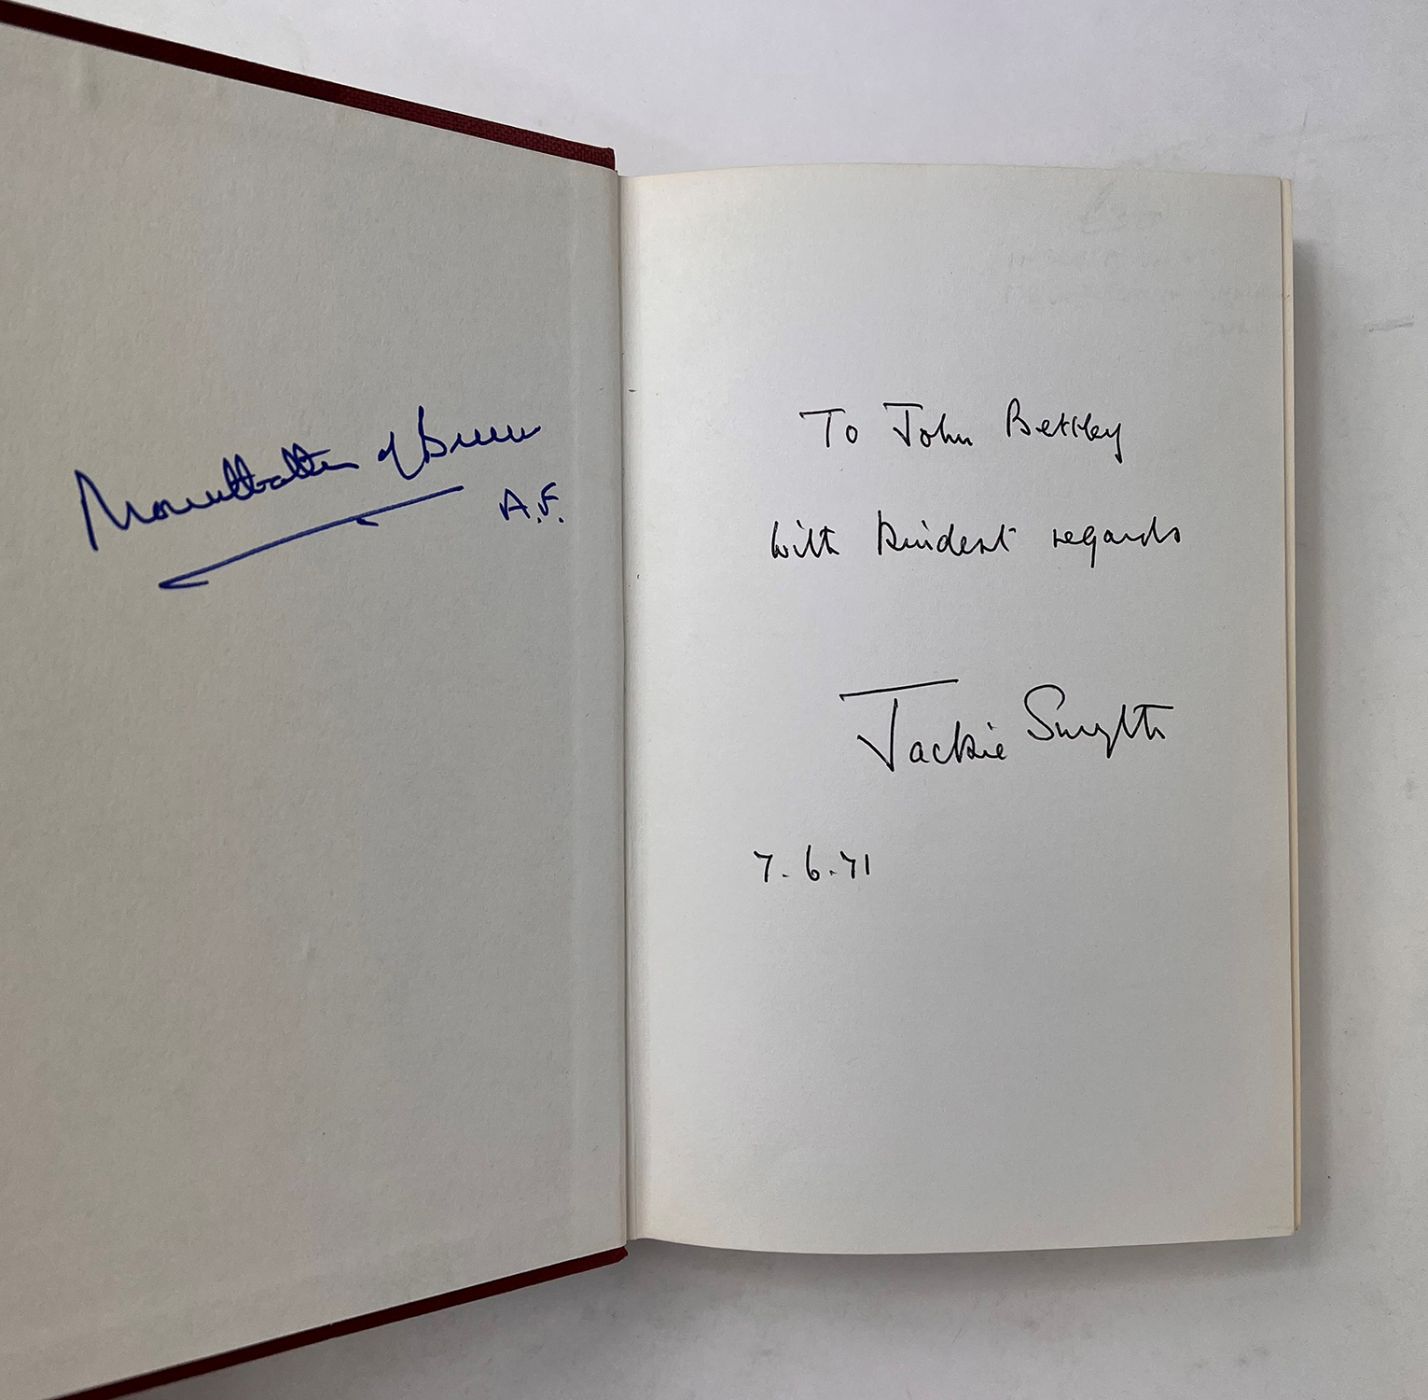 Mountbatten of Burma
A.F.
To John Bettley
with kindest regards
Jackie Smyth
7.6.71